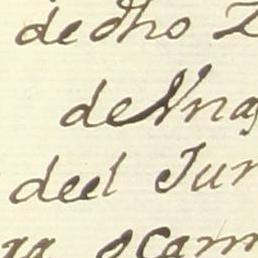 de dho
de Vna
deel Jur
ocam